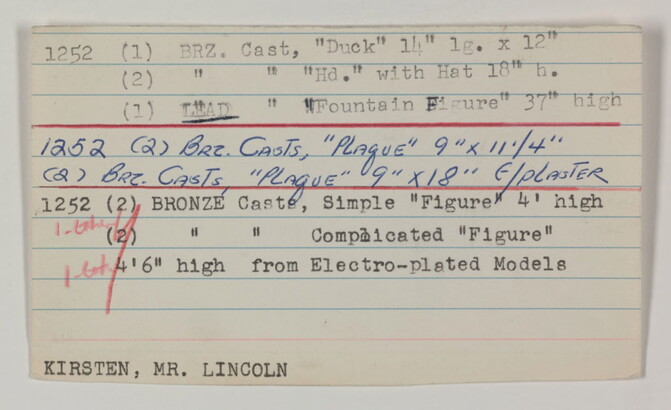 1252 (1) BRZ. Cast, "Duck" 14" lg. x 12"
(2) " " "Hd." with Hat 18" h.
(1) LEAD " "Fountain Figure" 37" high
1252 (2) BRZ. CASTS, "PLAQUE" 9" X 11 1/4"
(2) BRZ. CASTS, "PLAQUE" 9" X 18" F/PLASTER
1252 (2) BRONZE Casts, Simple "Figure" 4' high
(2) " " Complicated "Figure"
4'6" high from Electro-plated Models
KIRSTEN, MR. LINCOLN